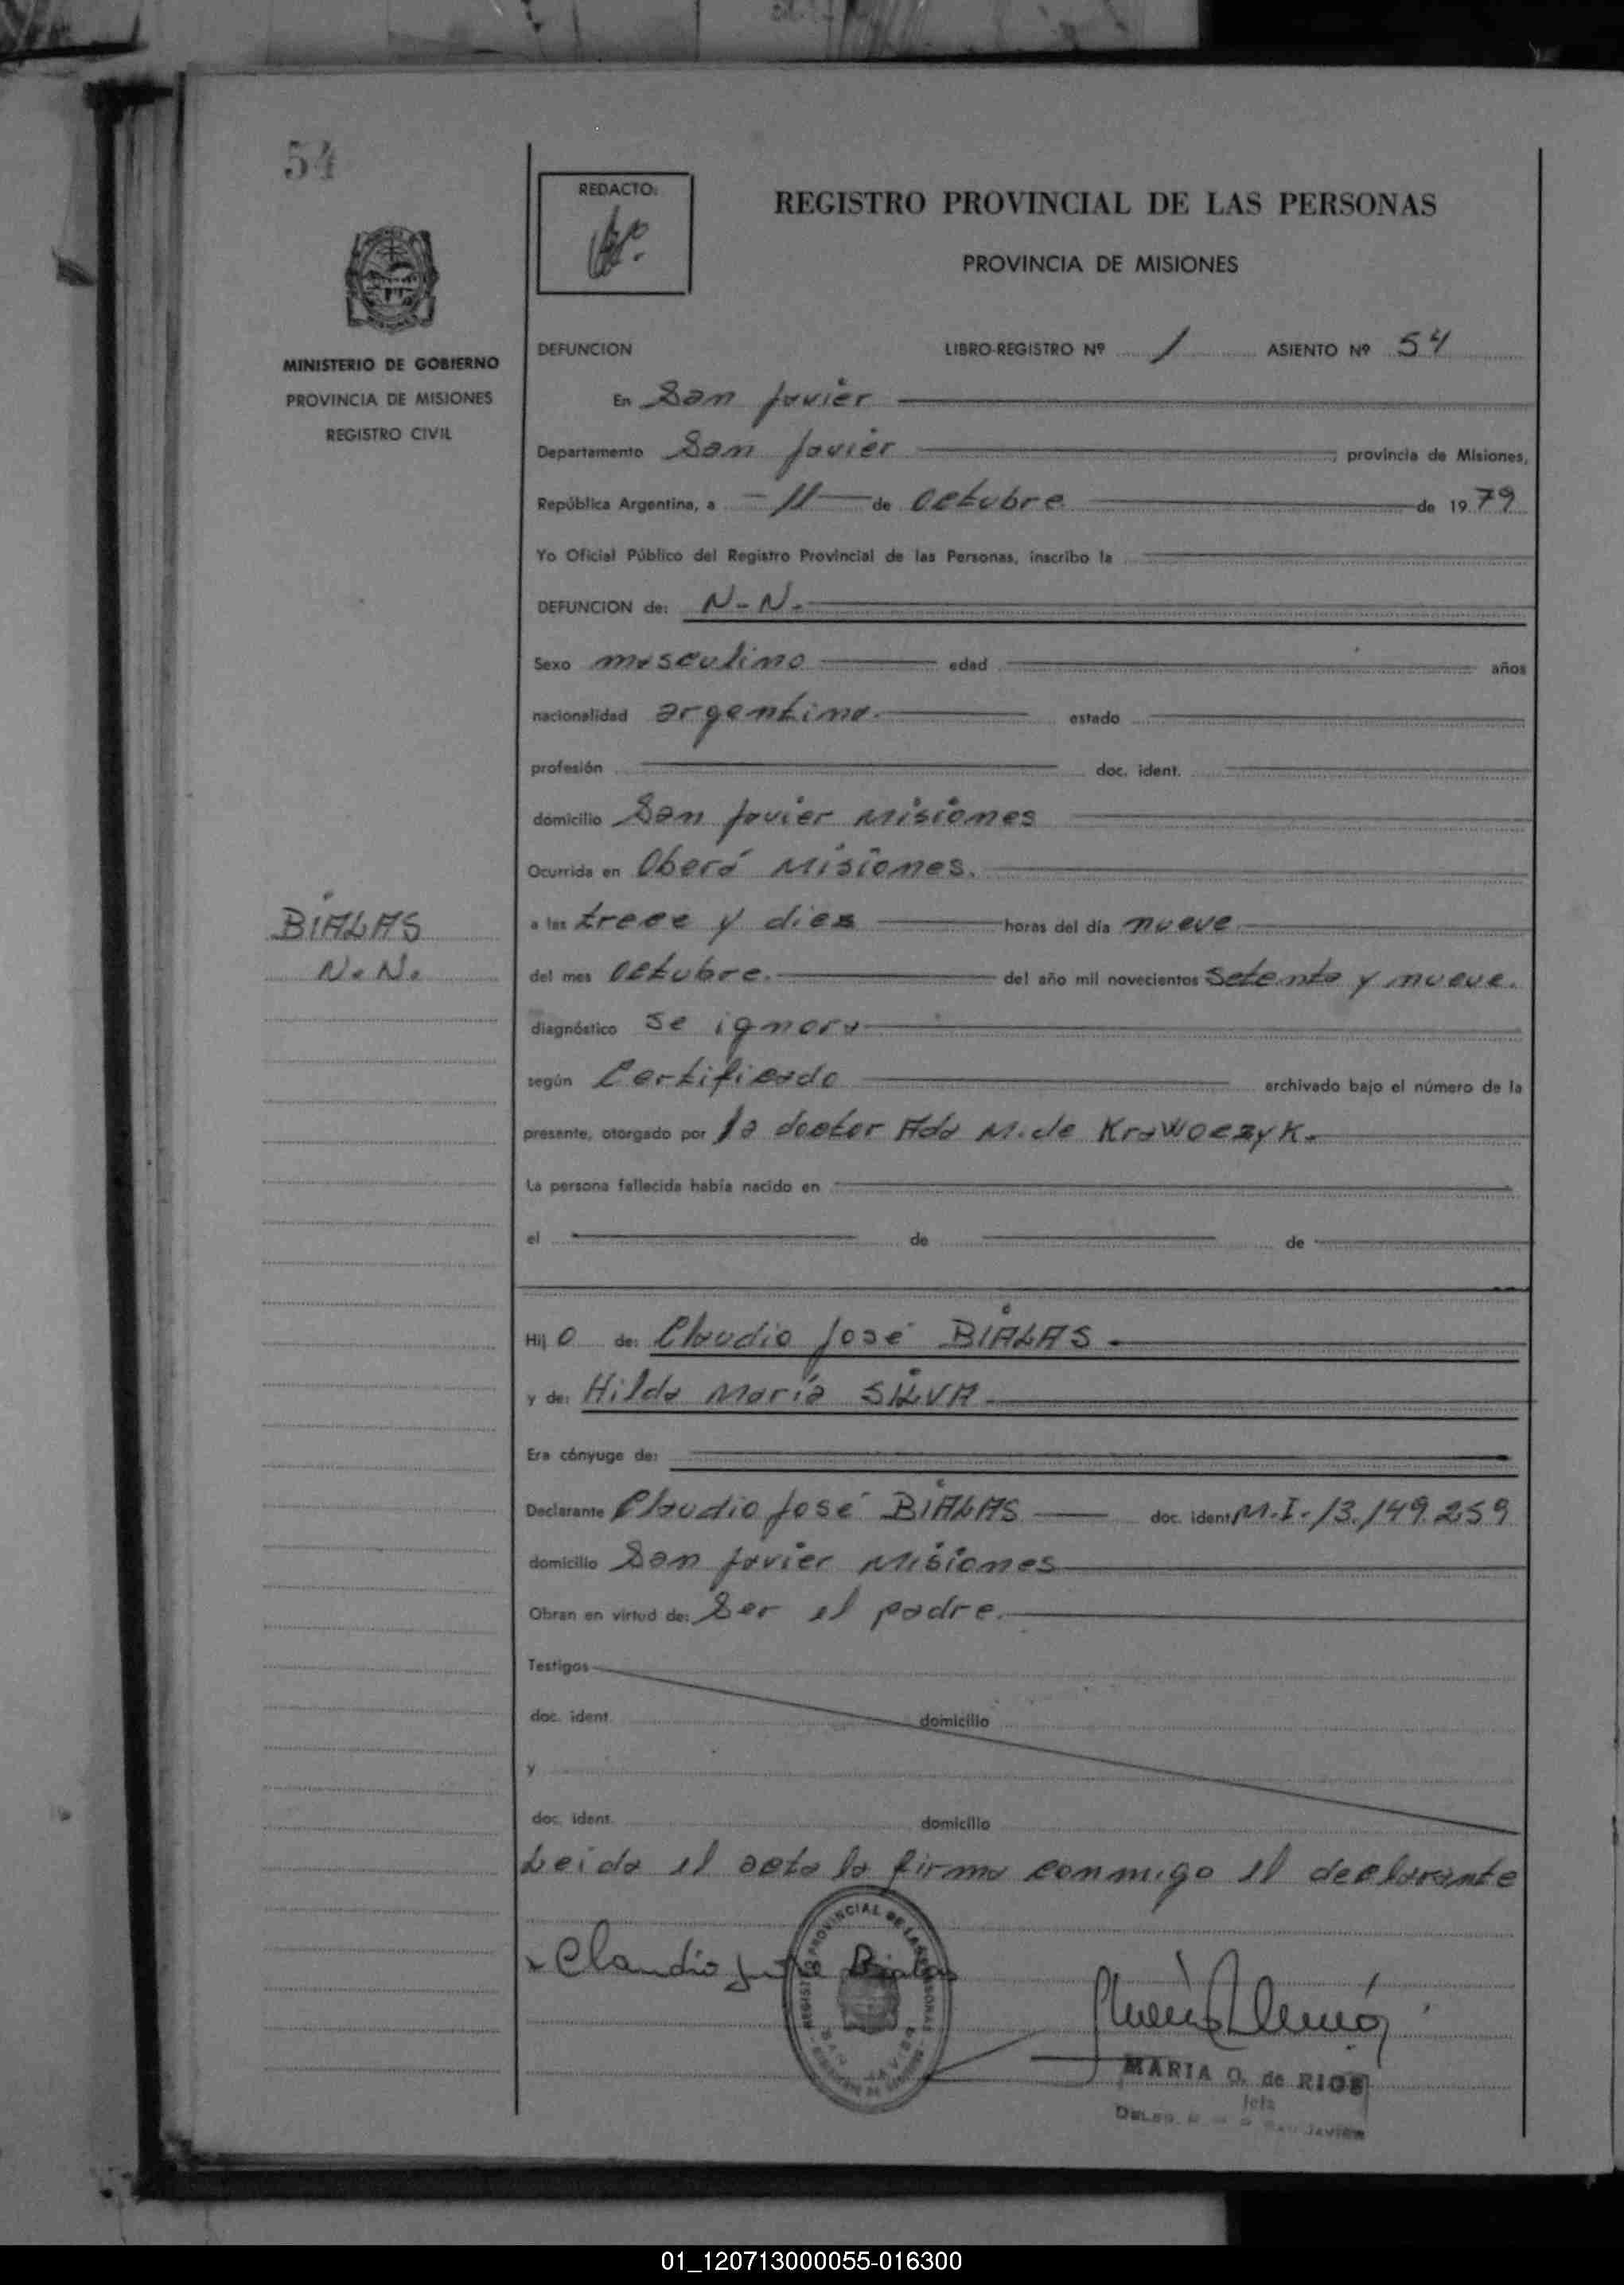 54
REDACTO:
REGISTRO PROVINCIAL DE LAS PERSONAS
PROVINCIA DE MISIONES
MINISTERIO DE GOBIERNO
PROVINCIA DE MISIONES
REGISTRO CIVIL
DEFUNCION LIBRO-REGISTRO Nº 1 ASIENTO Nº 54
En San Javier
Departamento San Javier, provincia de Misiones,
República Argentina, a -11- de Octubre de 1979
Yo Oficial Público del Registro Provincial de las Personas, inscribo la
DEFUNCION de: N-N.
Sexo masculino edad años
nacionalidad argentina. estado
profesión doc. ident.
domicilio San Javier Misiones
Ocurrida en Oberá Misiones.
BIALAS
N.N.
a las trece y diez horas del día nueve
del mes Octubre. del año mil novecientos setenta y nueve.
diagnóstico se ignora
según Certificado archivado bajo el número de la
presente, otorgado por la doctor Ada M. de Krawoczyk.
La persona fallecida había nacido en
el de de
Hijo de: Claudio José BIALAS.
y de: Hilda María SILVA
Era cónyuge de:
Declarante Claudio José BIALAS doc. ident. M.I. 13.149.259
domicilio San Javier Misiones
Obran en virtud de: Ser el padre.
Testigos
doc. ident. domicilio
y
doc. ident. domicilio
Leida el acta la firma conmigo el declarante
x Claudio José Bialas
REGISTRO PROVINCIAL DE LAS PERSONAS
SAN JAVIER
MARIA O. de RIOS
Jefa
San Javier
01_120713000055-016300